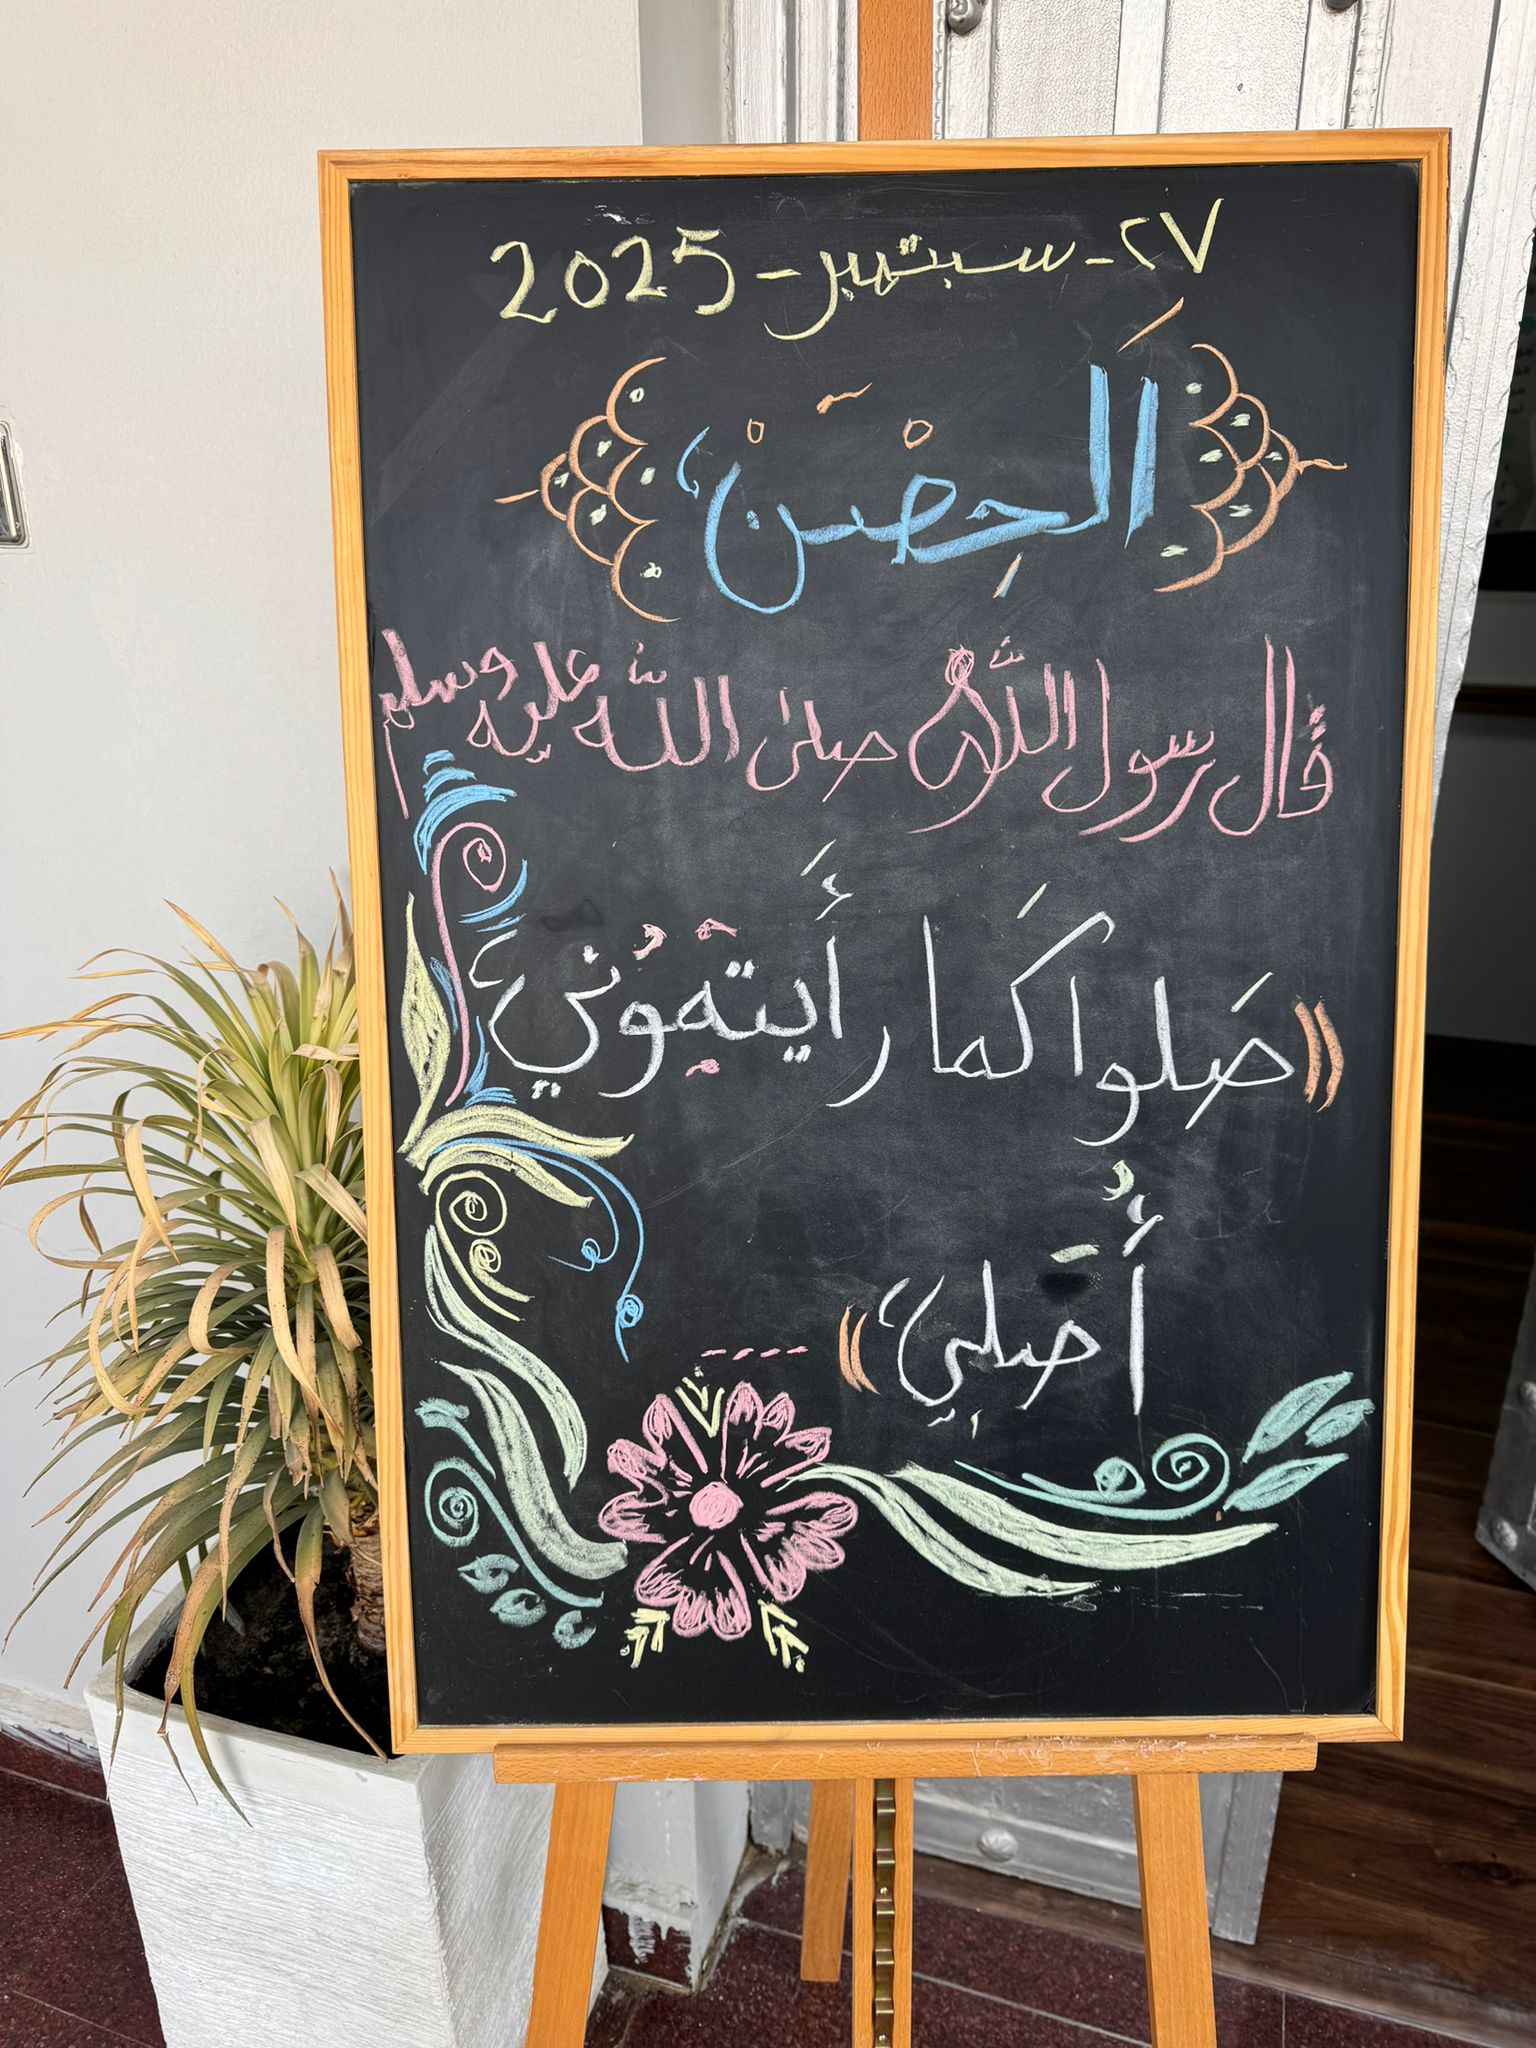 ٢٧ - سبتمبر - 2025
اَلحِصْنْ
قال رسول اللّٰه صلى اللّٰه عليه وسلم
«صَلوا كَما رأَيتموُني
أُصَلِي»